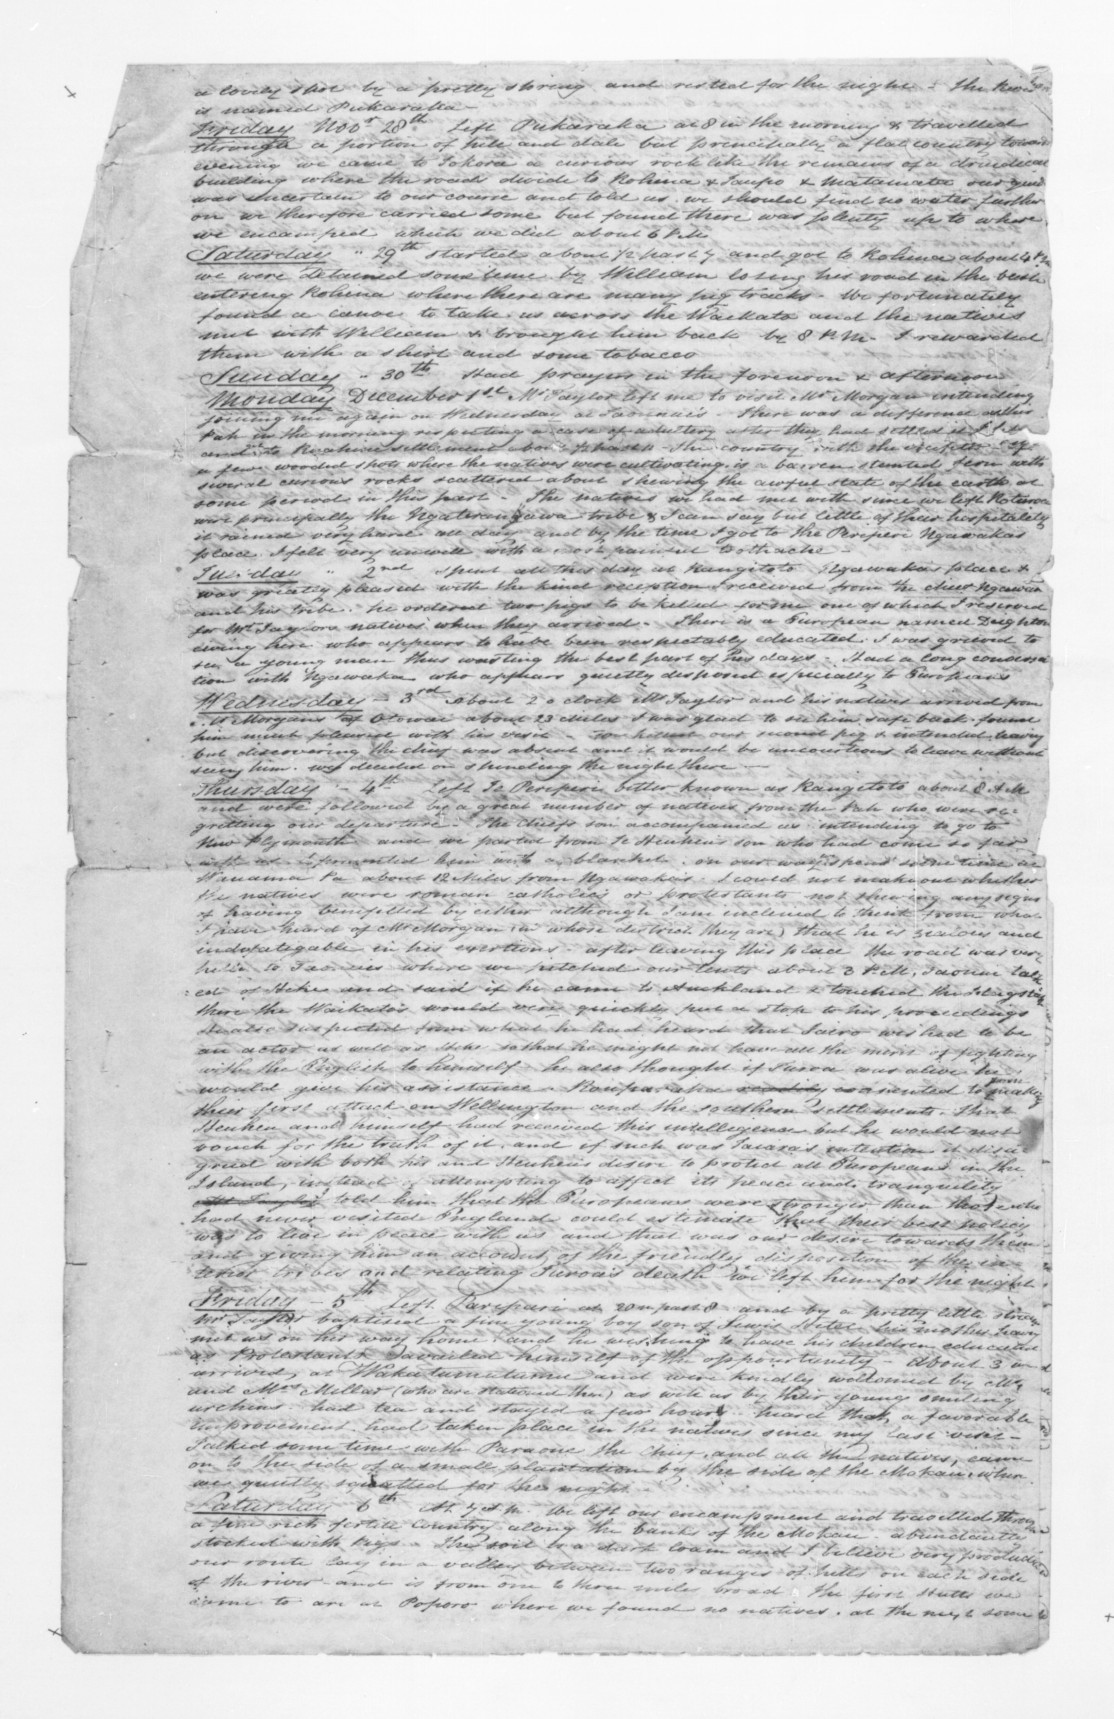 a lovely spot by a pretty spring and rested for the night - the
is named Pukaraka -
Friday Novr 28th Left Pukaraka at 8 in the morning & travelled
through a portion of hill and dale but principally a flat country toward
evening we came to Tokora a curious rock like the remains of a druidical
building where the roads divide to Rohina & Taupo & Matamata our guide
was uncertain to our course and told us we should find no water further
on we therefore carried some but found there was plenty up to where
we encamped which we did about 6 P.M.
Saturday " 29th started about 1/2 past 7 and got to Rohina about 4 P.M
we were detained some time by William losing his road in the bush
entering Rohina where there are many pig tracks. We fortunately
found a canoe to take us across the Waikato and the natives
met with William & brought him back by 8 P.M. I rewarded
them with a shirt and some tobacco
Sunday " 30th Had prayers in the forenoon & afternoon
Monday December 1st Mr Taylor left me to visit Mr Morgan intending
joining me again on Wednesday at Taonui's - There was a difference at this
Pah in the morning respecting a case of adultery after they had settled it I left
and to settlement about 1/2 past 4 - the country with the exception of
a few wooded spots where the natives were cultivating is a barren stunted fern with
several curious rocks scattered about shewing the awful state of the earth at
some period in this part. The natives we had met with since we left Rotorua
were principally the Ngateraukawa tribe & I can say but little of their hospitality
it rained very hard all day and by the time I got to the Peripori Ngawakas
place I felt very unwell with a most painful toothache -
Tuesday " 2nd Spent all this day at Rangitoto Ngawakas place &
was greatly pleased with the kind reception I received from the chief Ngawaka
and his tribe. he ordered two pigs to be killed for me one of which I reserved
for Mr Taylors natives when they arrived. There is a European named Deighton
living here who appears to have been respectably educated. I was grieved to
see a young man thus wasting the best part of his days. Had a long conversa
tion with Ngawaka who appears quietly disposed especially to Europeans
Wednesday - 3rd About 2 o clock Mr Taylor and his natives arrived from
Mr Morgans at Otawao about 23 miles I was glad to see him safe back. found
him much pleased with his visit. our second pig & intended leaving
but discovering the chief was absent and it would be uncourteous to leave without
seeing him. we decided on spending the night there -
Thursday - 4th Left Te Peripori better known as Rangitoto about 8 A.M
and were followed by a great number of natives from the Pah who were re-
gretting our departure. The chiefs son accompanied us intending to go to
New Plymouth and we parted from Te Heuheu's son who had come so far
with us. I presented him with a blanket. on our way spent some time at
Wanama Pa about 12 Miles from Ngawaka's. I could not make out whether
the natives were roman catholics or protestants not shewing any signs
of having benifitted by either although I am inclined to think from what
I have heard of Mr Morgan (in whose district they are) that he is zealous and
indefatigable in his exertions - after leaving this place the road was very
hilly to Taonui's where we pitched our tents about 3 P.M. Taonui talk
ed of Heke and said if he came to Auckland & touched the flagstaff
there the Waikato's would very quickly put a stop to his proceedings
He also suspected from what he had heard that wished to be
an actor as well as Heke so that he might not have all the merit of fighting
with the English to himself he also thought if Turoa was alive he
would give his assistance & Rauparaha consented to making
their first attack on Wellington and the southern settlements. That
Heuheu and himself had received this intellegence but he would not
vouch for the truth of it and if such was intention it disa
greed with both his and Heuheu's desire to protect all Europeans in the
Island, instead of attempting to affect its peace and tranquility
told him that the Europeans were stronger than those who
had never visited England could estimate that their best policy
was to live in peace with us and that was our desire towards them
and giving him an account of the friendly disposition of the in-
terior tribes and relating Turoa's death we left him for the night
Friday - 5th Left Parepari at 20 m past 8 and by a pretty little stream
Mr Taylor baptised a fine young boy son of Lewis Hetet his mother having
met us on his way home and he wishing to have his children educated
as Protestants availed himself of the oppourtunity - About 3 we
arrived at Wakatumutumu and were kindly welcomed by Mr
and Mrs Miller (who are stationed there) as well as by their young smiling
urchins. had tea and stayed a few hours. heard that a favorable
improvement had taken place in the natives since my last visit -
Talked some time with Paraone the chief and all the natives, came
on to the side of a small plantation by the side of the Mokau where
we quietly squatted for the night -
Saturday - 6th At 7 A.M. we left our encampment and travelled through
a fine rich fertile country along the banks of the Mokau abundantly
stocked with Pigs. The soil is a dark loam and I believe very productive
our route lay in a valley between two ranges of hills on each side
of the river and is from one to three miles broad the first Hutts we
came to are at Poporo where we found no natives. at the next some